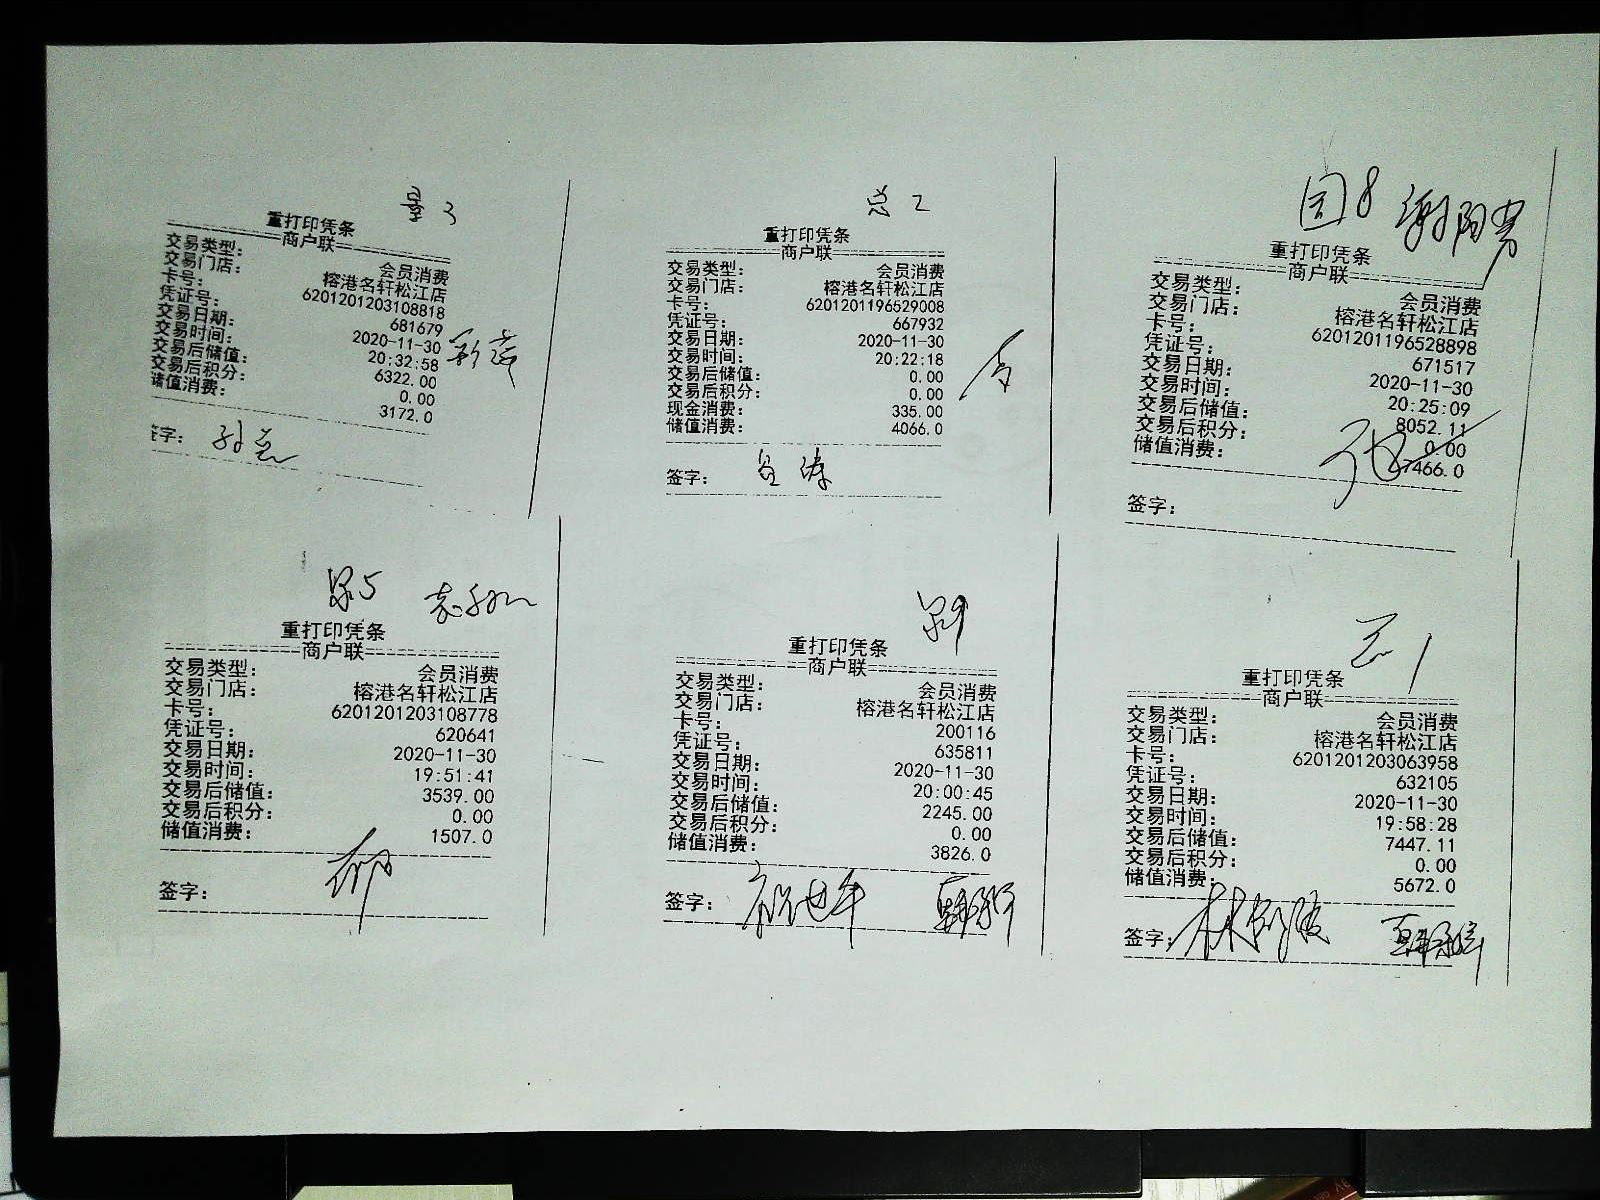 重打印凭条
商户联
交易类型： 会员消费
交易门店： 榕港名轩松江店
卡号： 6201201203108818
凭证号： 681679
交易日期： 2020-11-30
交易时间： 20:32:58
交易后储值： 6322.00
交易后积分： 0.00
储值消费： 3172.0
签字：
总2
重打印凭条
商户联
交易类型： 会员消费
交易门店： 榕港名轩松江店
卡号： 6201201196529008
凭证号： 667932
交易日期： 2020-11-30
交易时间： 20:22:18
交易后储值： 0.00
交易后积分： 0.00
现金消费： 335.00
储值消费： 4066.0
签字：
重打印凭条
商户联
交易类型： 会员消费
交易门店： 榕港名轩松江店
卡号： 6201201196528898
凭证号： 671517
交易日期： 2020-11-30
交易时间： 20:25:09
交易后储值： 8052.11
交易后积分： 0.00
储值消费： 7466.0
签字：
重打印凭条
商户联
交易类型： 会员消费
交易门店： 榕港名轩松江店
卡号： 6201201203108778
凭证号： 620641
交易日期： 2020-11-30
交易时间： 19:51:41
交易后储值： 3539.00
交易后积分： 0.00
储值消费： 1507.0
签字：
重打印凭条
商户联
交易类型： 会员消费
交易门店： 榕港名轩松江店
卡号： 200116
凭证号： 635811
交易日期： 2020-11-30
交易时间： 20:00:45
交易后储值： 2245.00
交易后积分： 0.00
储值消费： 3826.0
签字：
重打印凭条
商户联
交易类型： 会员消费
交易门店： 榕港名轩松江店
卡号： 6201201203063958
凭证号： 632105
交易日期： 2020-11-30
交易时间： 19:58:28
交易后储值： 7447.11
交易后积分： 0.00
储值消费： 5672.0
签字：